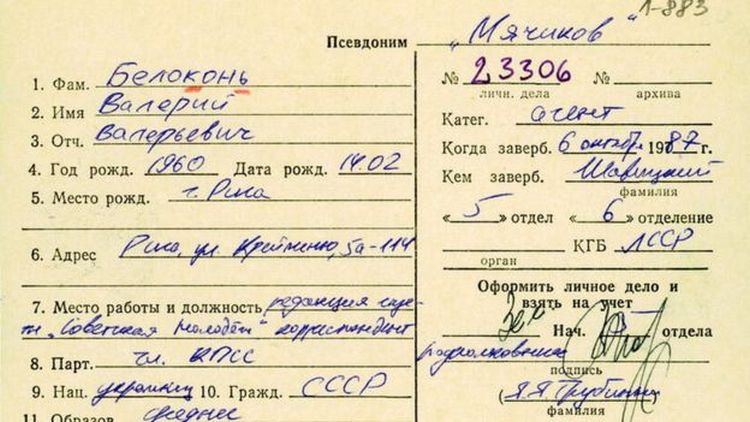 1-883
Псевдоним „Мячиков"
1. Фам. Белоконь
2. Имя Валерий
3. Отч. Валерьевич
4. Год рожд. 1960 Дата рожд. 14.02
5. Место рожд. г. Рига
6. Адрес Рига, ул. 5а-114
7. Место работы и должность редакция газе-
ты „Советская молодёжь" корреспондент
8. Парт. чл. КПСС
9. Нац. украинец 10. Гражд. СССР
11. Образов. среднее
№ 23306 №
личн. дела архива
Катег. агент
Когда заверб. 6 октября 1987 г.
Кем заверб. Шавицкий
фамилия
«5» отдел «6» отделение
КГБ ЛССР
орган
Оформить личное дело и
взять на учет
Зам. Нач. 5 отдела
подполковник
подпись
фамилия